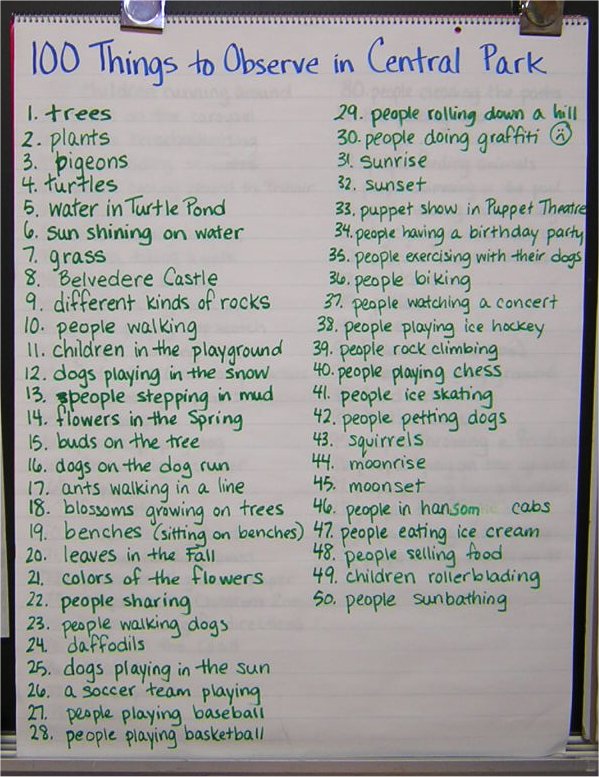 100 Things to Observe in Central Park
1. trees
2. plants
3. pigeons
4. turtles
5. water in Turtle Pond
6. sun shining on water
7. grass
8. Belvedere Castle
9. different kinds of rocks
10. people walking
11. children in the playground
12. dogs playing in the snow
13. people stepping in mud
14. flowers in the Spring
15. buds on the tree
16. dogs on the dog run
17. ants walking in a line
18. blossoms growing on trees
19. benches (sitting on benches)
20. leaves in the Fall
21. colors of the flowers
22. people sharing
23. people walking dogs
24. daffodils
25. dogs playing in the sun
26. a soccer team playing
27. people playing baseball
28. people playing basketball
29. people rolling down a hill
30. people doing graffiti
31. sunrise
32. sunset
33. puppet show in Puppet Theatre
34. people having a birthday party
35. people exercising with their dogs
36. people biking
37. people watching a concert
38. people playing ice hockey
39. people rock climbing
40. people playing chess
41. people ice skating
42. people petting dogs
43. squirrels
44. moonrise
45. moonset
46. people in hansom cabs
47. people eating ice cream
48. people selling food
49. children rollerblading
50. people sunbathing